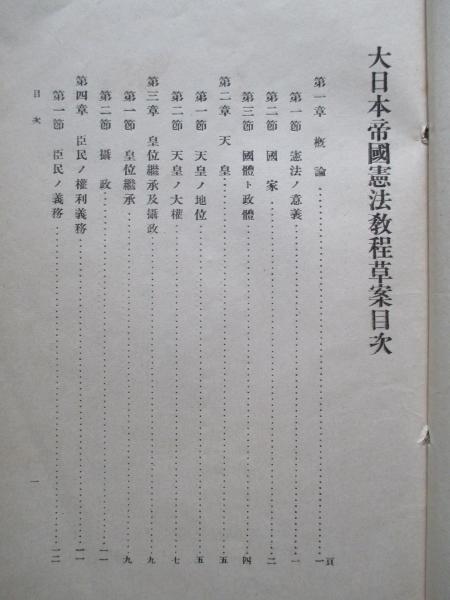 大日本帝國憲法教程草案目次
第一章 概論……一頁
第一節 憲法ノ意義……一
第二節 國家……二
第三節 國體ト政體……四
第二章 天皇……五
第一節 天皇ノ地位……五
第二節 天皇ノ大權……七
第三章 皇位繼承及攝政……九
第一節 皇位繼承……九
第二節 攝政……一一
第四章 臣民ノ權利義務……一一
第一節 臣民ノ義務……一二
目次
一